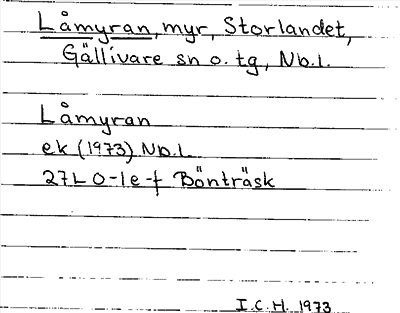 Låmyran, myr, Storlandet,
Gällivare sn o. tg, Nb.l.
Låmyran
ek (1973) Nb.l
27L 0-1e-f Bönträsk
I.C.H. 1973